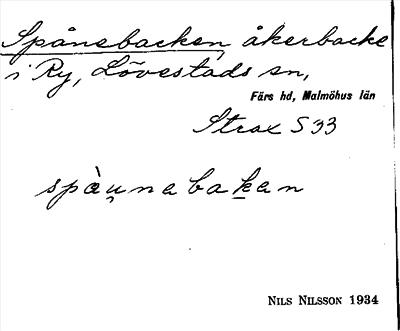 Spånebacken, åkerbacke
i Ry, Lövestads sn,
Färs hd, Malmöhus län
Strax S 33
spàu̯nabaḵan
NILS NILSSON 1934